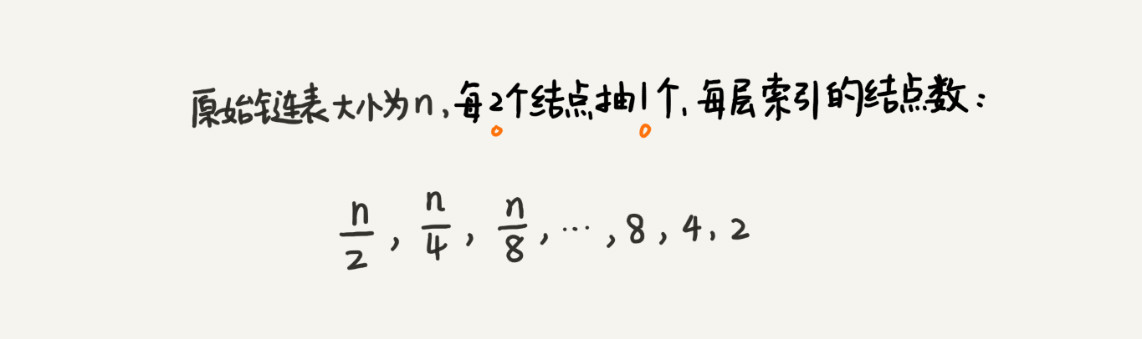 原始链表大小为n,每2个结点抽1个,每层索引的结点数:
n/2, n/4, n/8, ..., 8, 4, 2